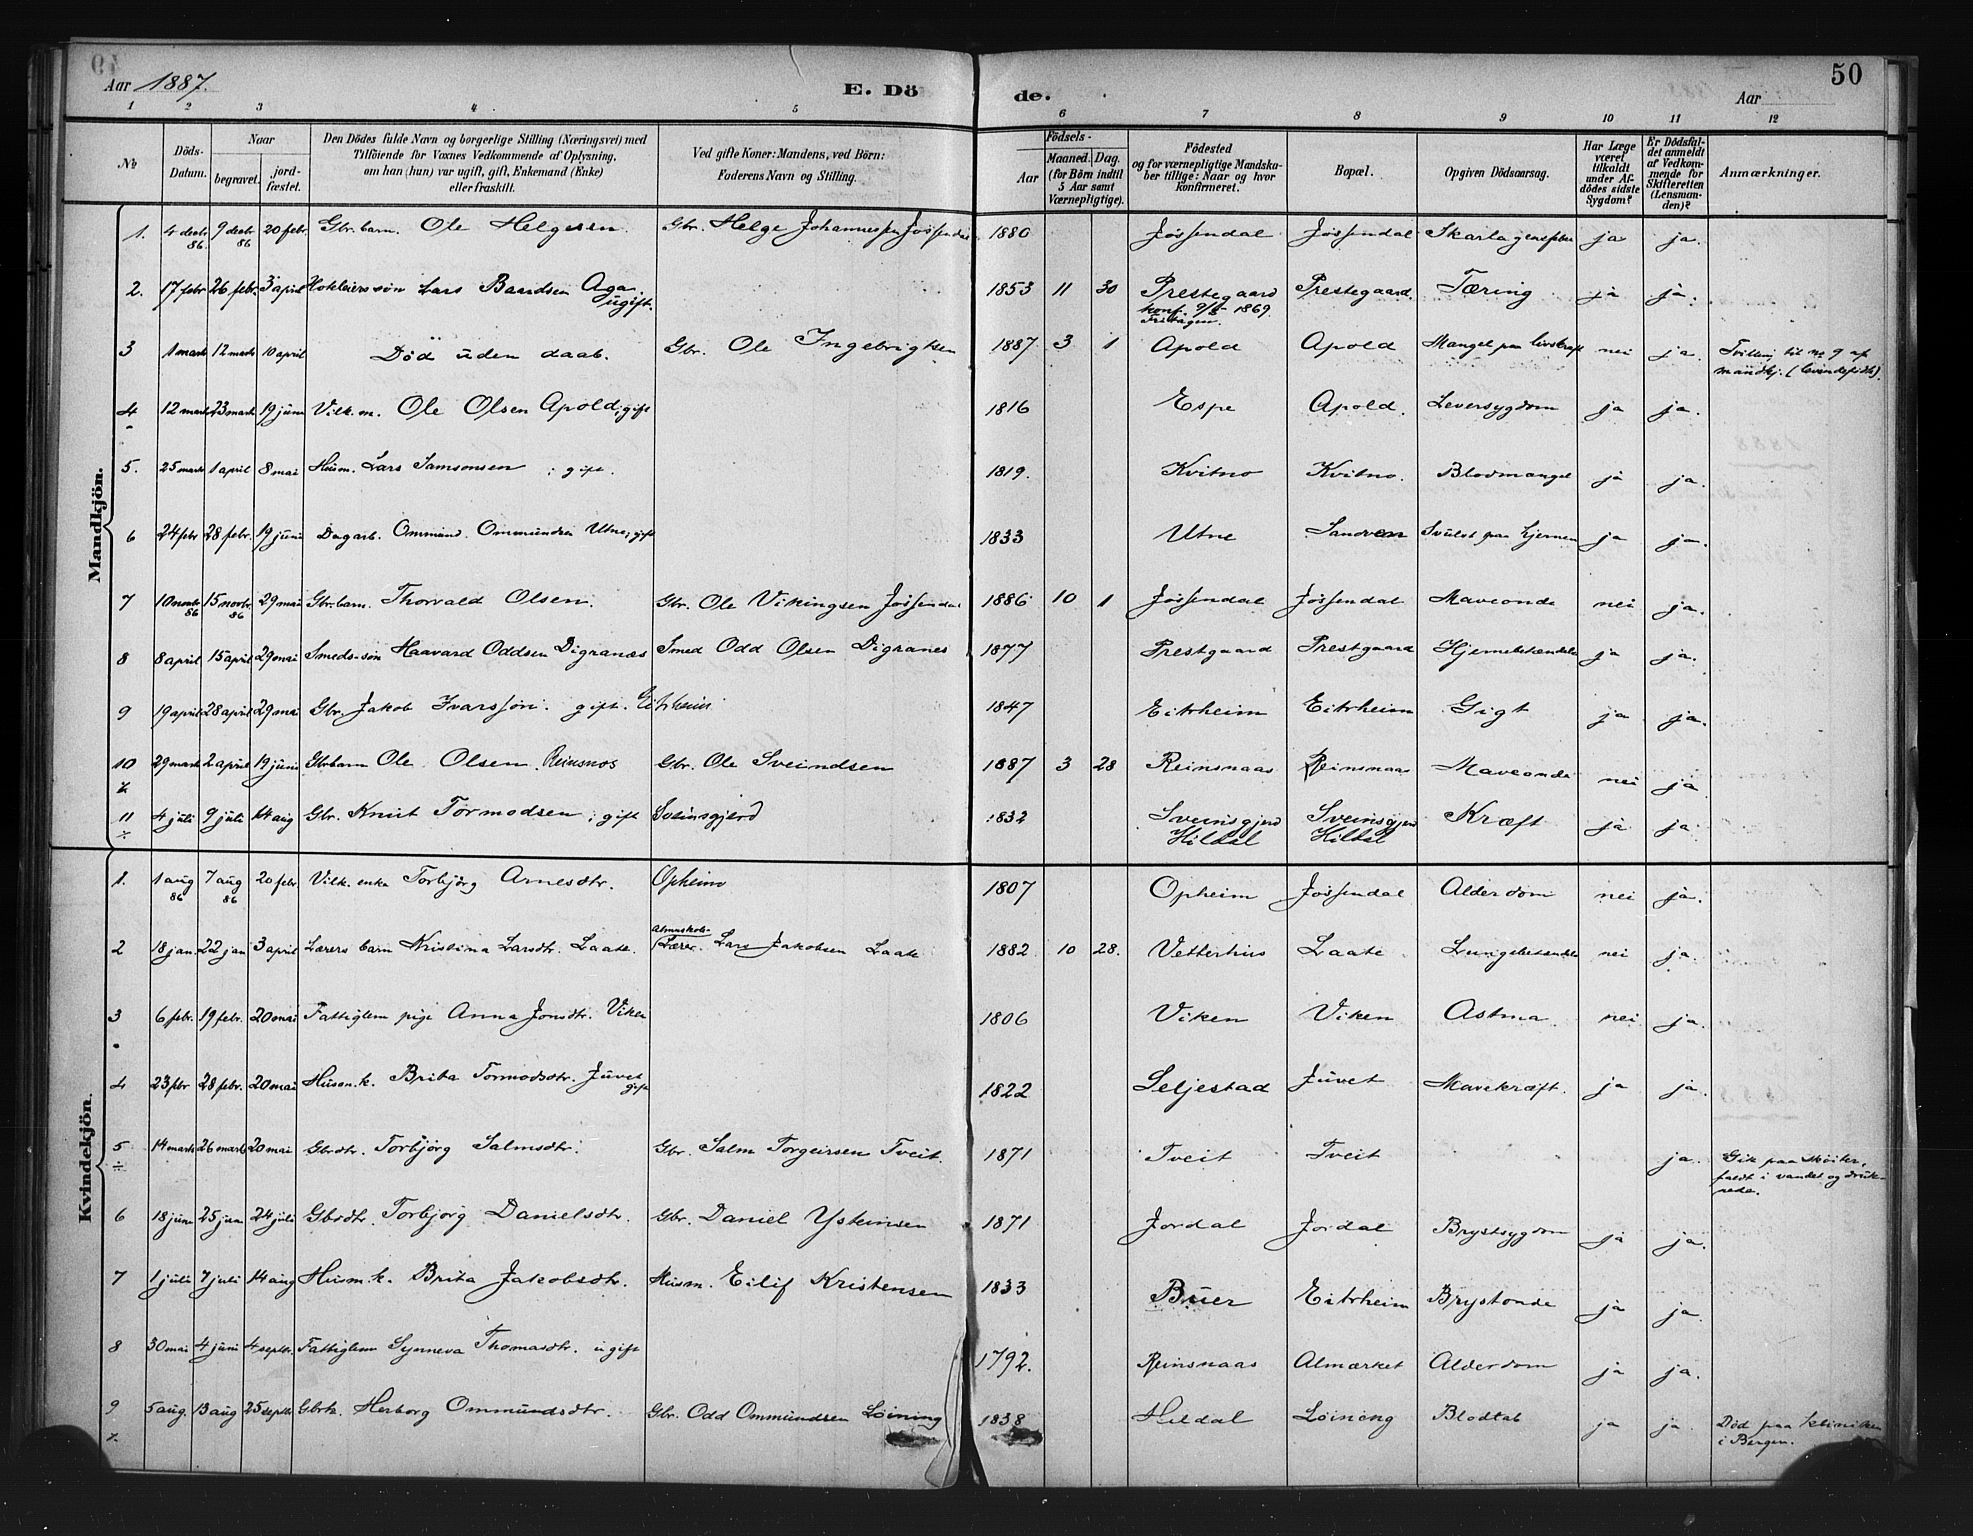 50
Aar 1887. E. Döde. Aar
1 2 3 4 5 6 7 8 9 10 11 12
№
Döds-Datum.
Naar
begravet.
jord-fæstet.
Den Dödes fulde Navn og borgerlige Stilling (Næringsvei) med
Tilföiende for Voxnes Vedkommende af Oplysning,
om han (hun) var ugift, gift, Enkemand (Enke)
eller fraskilt.
Ved gifte Koner: Mandens, ved Börn:
Faderens Navn og Stilling.
Födsels-
Aar
Maaned. Dag.
(for Börn indtil
5 Aar samt
Værnepligtige).
Födested
og for værnepligtige Mandska-
ber tillige: Naar og hvor
konfirmeret.
Bopæl.
Opgiven Dödsaarsag.
Har Læge
været
tilkaldt
under Af-
dödes sidste
Sygdom?
Er Dödsfal-
det anmeldt
af Vedkom-
mende for
Skifteretten
(Lensman-
den)?
Anmærkninger.
Mandkjön.
1. 4 decbr 86 9 decbr 86 20 febr. Gbr. barn. Ole Helgesen Gbr. Helge Johannessen Jössendal 1880 Jössendal Jössendal Skarlagensfeber ja ja.
2. 17 febr 26 febr. 3 april Hoteleiers søn Lars Baardsen Aga. ugift. 1853 11 30 Prestegaard Prestegaard. Tæring ja ja.
konf. 1869
3 1 marts 12 marts 10 april Död uden daab. Gbr. Ole Ingebrigtsen 1887 3 1 Apold Apold Mangel paa livskraft nei ja. Tvilling til no 9 af
mandkj. (kvindefødte).
4 12 marts 23 marts 19 juni Vilk. m. Ole Olsen Apold; gift 1816 Espe Apold. Leversygdom ja ja.
5. 25 marts 1 april 8 mai Husm. Lars Samsonsen ; gift. 1819. Kvitno Kvitno. Blodmangel ja ja.
6 24 febr 28 febr. 19 juni Dagarb. Ommund Ommundsen Utne; gift 1833 Utne Sandven Svulst paa hjernen ja ja.
7 10 novbr 86 15 novbr. 86 29 mai Gbr. barn. Thorvald Olsen. Gbr. Ole Vikingsen Jössendal 1886 10 1 Jössendal Jössendal Maveonde nei ja.
8 8 april 15 april 29 mai Smeds-søn Haavard Oddsen Digranæs Smed Odd Olsen Digranes 1877 Prestgaard Prestgaard Hjernebetændelse ja ja.
9 19 april 28 april 29 mai Gbr. Jakob Ivarssön. gift. Eitrheim 1847 Eitrheim Eitrheim Gigt ja ja.
10 29 marts 2 april 19 juni Gbr. barn Ole Olsen. Reinsnos Gbr. Ole Sveindsen 1887 3 28 Reinsnaas Reinsnaas Maveonde nei ja
11 4 juli 9 juli 14 aug Gbr. Knut Tormodsen; gift Sveinsgjerd 1832 Sveinsgjerd Hildal Sveinsgjerd Hildal Kræft ja ja.
Kvindekjön.
1. 1 aug 86 7 aug 86 20 febr. Vilk. enke Torbjörg Arnesdtr. Opheim 1807 Opheim Jössendal Alderdom nei ja.
2 18 jan. 22 jan 3 april Lærers barn Kristina Larsdtr. Laate. Almuskol-Lærer. Lars Jakobsen Laate 1882 10 28. Vetterhus Laate Lungebetændelse nei ja.
3 6 febr. 19 febr. 20 mai Fattiglem pige Anna Jonsdtr. Viken 1806 Viken Viken Astma. nei ja.
4 23 febr 28 febr. 20 mai Husm. k. Brita Tormodsdtr. Juvet gift 1822 Seljestad Juvet Mavekræft. ja ja.
5 14 marts 26 marts 20 mai Gbrdtr. Torbjörg Salmsdtr. Gbr. Salm Torgeirsen Tveit. 1871 Tveit Tveit ja. Gik paa skøiter,
faldt i vandet og druk-
nede.
6 18 juni 25 juni 24 juli Gbrdtr. Torbjorg Danielsdtr. Gbr. Daniel Ysteinsen 1871 Jordal Jordal Brystsygdom ja ja.
7 1 juli 7 juli 14 aug Husm. k. Brita Jakobsdtr. Husm. Eilif Kristensen 1833 Buer Eitrheim Brystonde ja ja.
8 30 mai 4 juni 4 septbr. Fattiglem Synneva Thomasdtr. ugift 1792. Reinsnaas Almærket Alderdom ja ja.
9 5 aug. 13 aug 25 septbr. Gbrk. Herborg Ommundsdtr. Gbr. Odd Ommundsen Löining 1838 Hildal Löining Blodtab ja ja. Död paa kliniken
i Bergen.